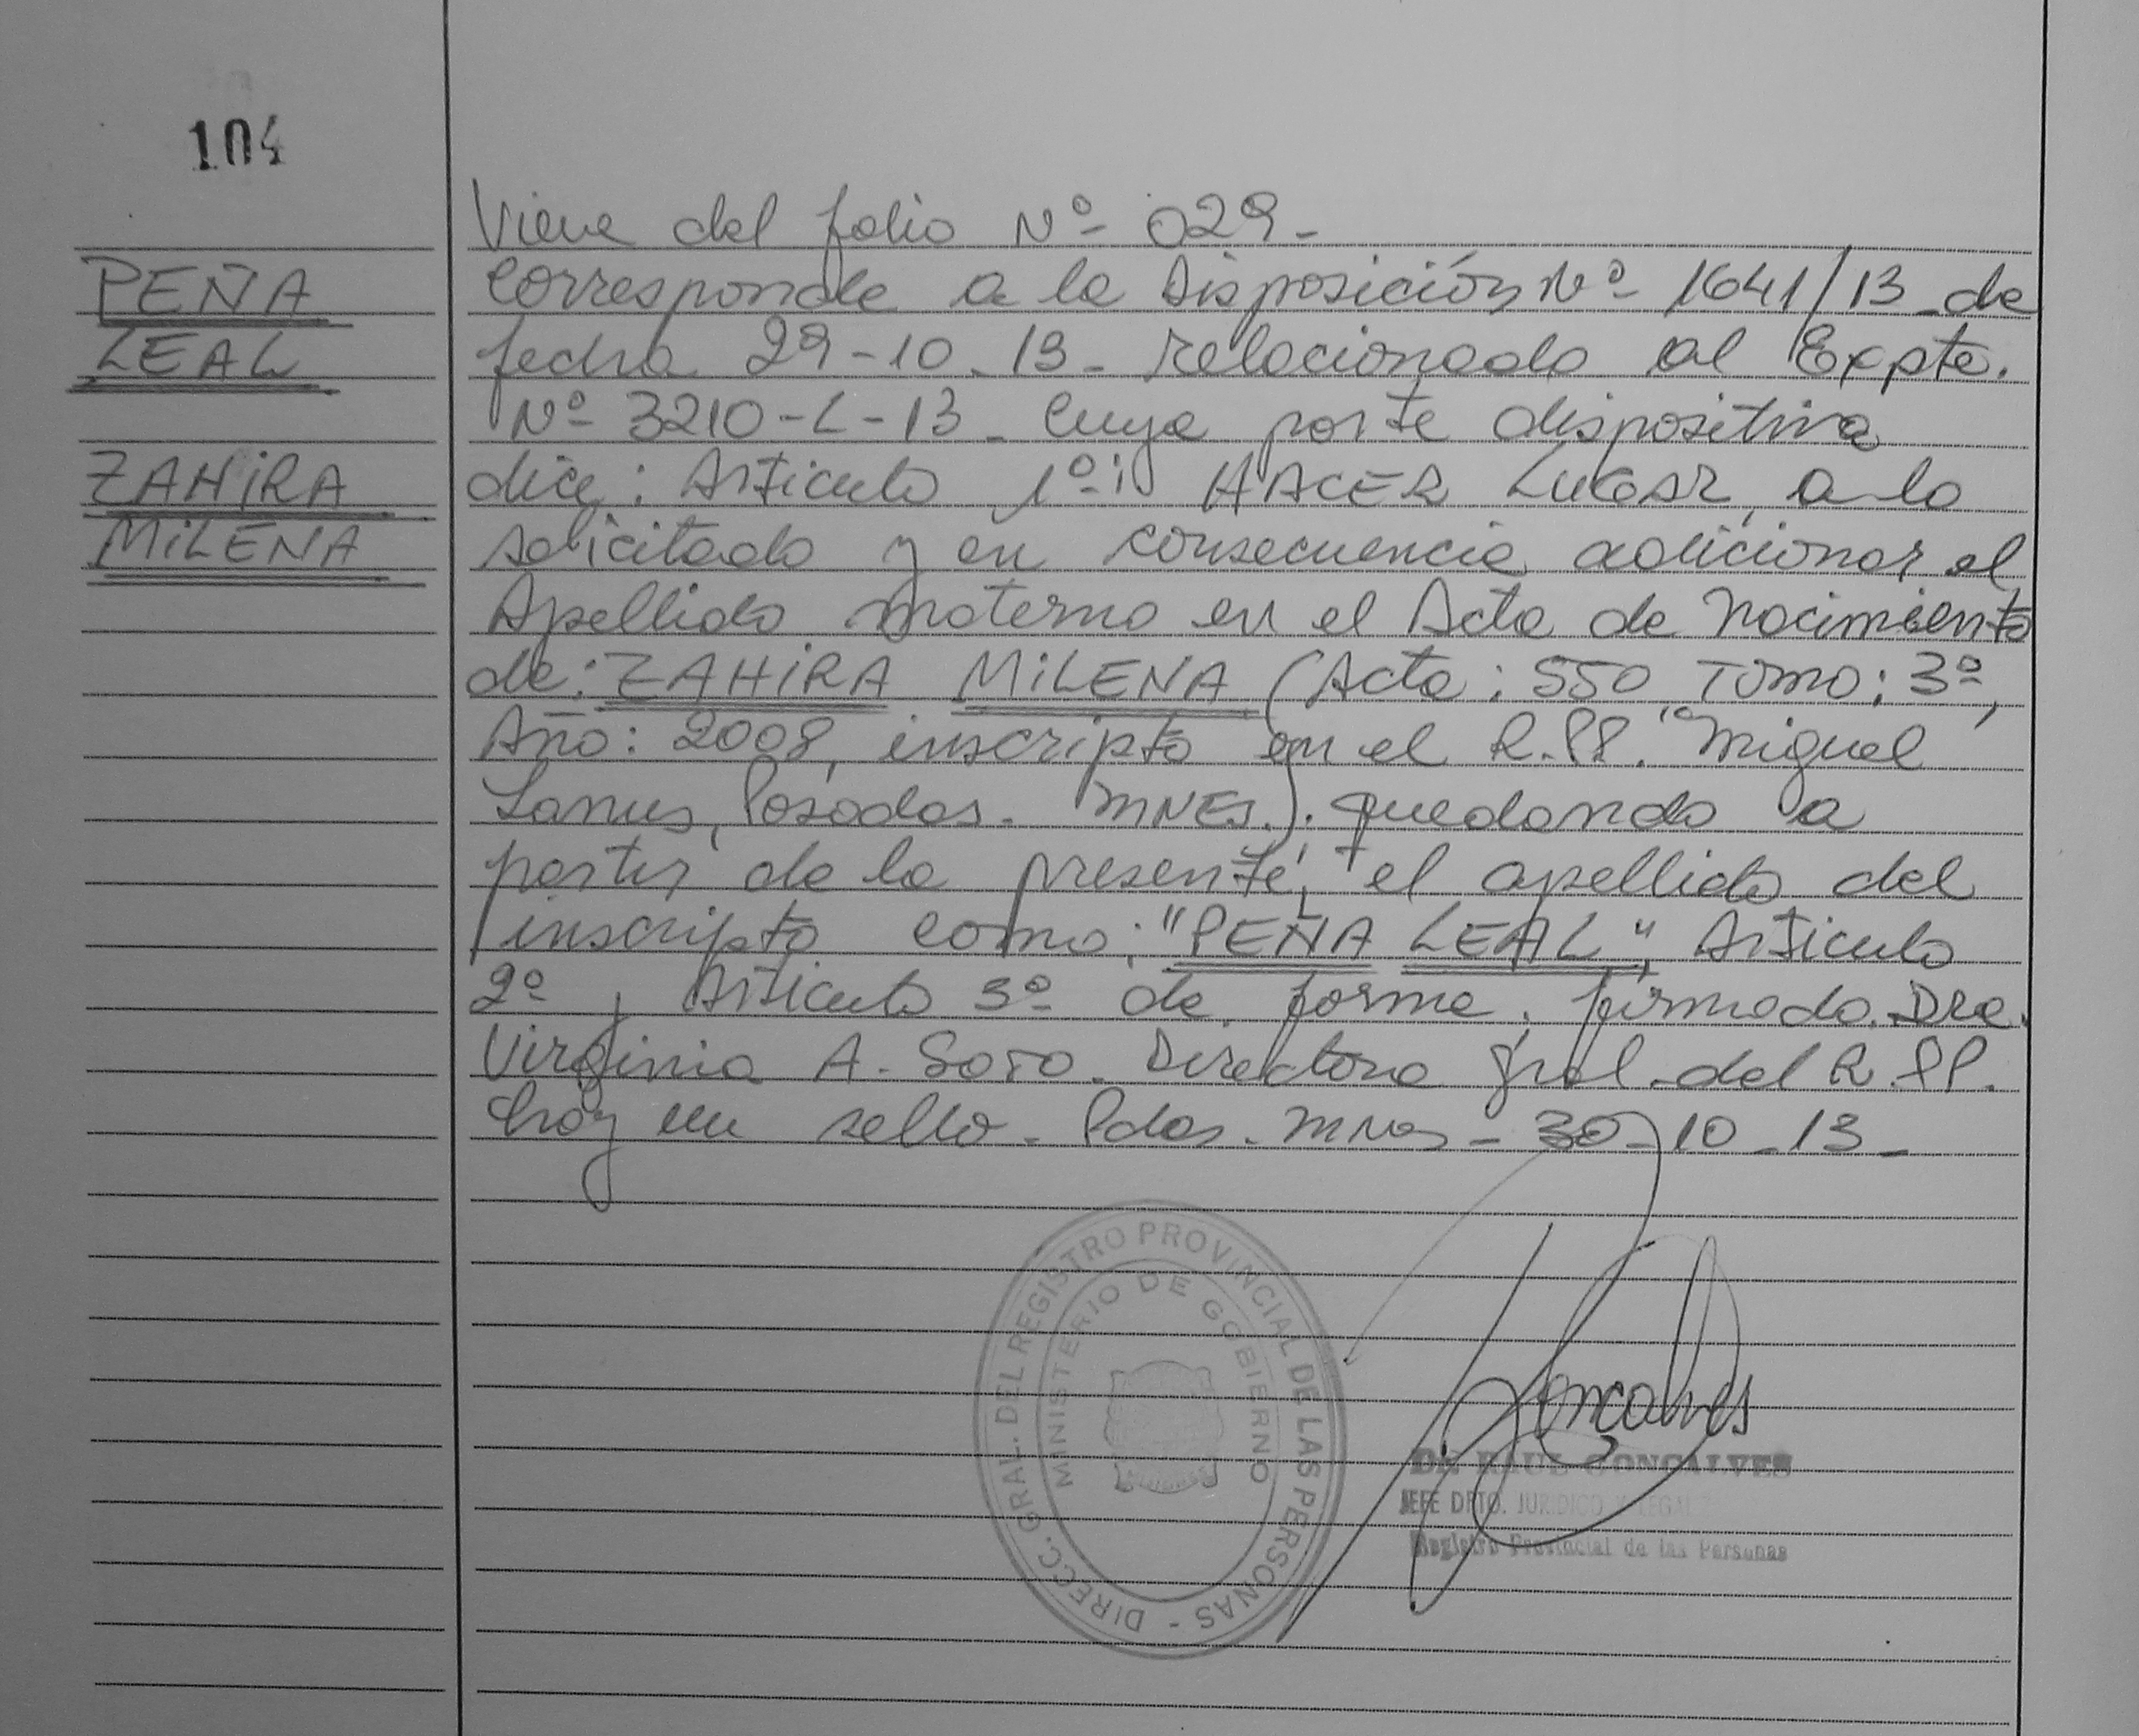 104
PEÑA
LEAL
ZAHIRA
MILENA
Viene del folio Nº 029-
Corresponde a la Disposición Nº 1641/13 - de
fecha 29-10-13- relacionado al Expte.
Nº 3210-L-13- Cuya parte dispositiva
dice: Articulo 1º: HACER LUGAR, a lo
solicitado y en consecuencia adicionar el
Apellido materno en el Acta de Nacimiento
de: ZAHIRA MILENA (Acta: 550 Tomo: 3º,
Año: 2008, inscripto en el R.PP. "Miguel
Lanus, Posadas. MNES.). quedando a
partir de la presente, el apellido del
inscripto como: "PEÑA LEAL", Articulo
2º y Articulo 3º de forma, firmado. Dra.
Virginia A. Soto. Directora gral. del R.PP.
hay un sello. Pdas. Mnes - 30-10-13-
DIRECC. GRAL. DEL REGISTRO PROVINCIAL DE LAS PERSONAS -
MINISTERIO DE GOBIERNO
Goncalves
Dr. RAUL GONCALVES
JEFE DPTO. JURIDICO Y LEGAL
Registro Provincial de las Personas